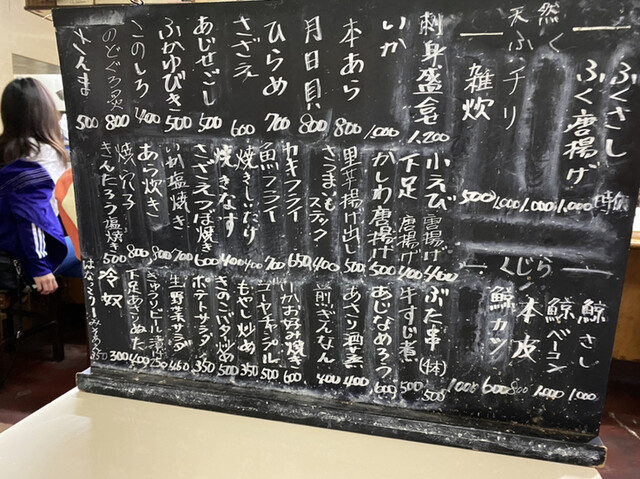 天然ふく
ふくさし 時価
ふく唐揚げ 1,000
チリ 1,000
雑炊 500
くじら
鯨さし 1,000
鯨ベーコン 1,000
本皮 800
鯨カツ 600
刺身盛合せ 1,200
いか 1,000
本あら 800
月日貝 800
ひらめ 700
さざえ 600
あじせごし 500
ふかゆびき 500
このしろ 400
のどぐろ炙 800
さんま 500
小えび唐揚げ 400
下足唐揚げ 400
かしわ唐揚げ 500
里芋揚げ出し 500
さつまいもスティック 400
カキフライ 650
魚フライ 700
焼きしいたけ 400
焼きなす 400
さざえつぼ焼き 600
いか塩焼き 700
あら炊き 800
焼穴子 800
きんたろう塩焼き 500
ぶた串(1本)
牛すじ煮 500
あじなめろう 600
あさり酒蒸 400
煎りぎんなん 400
いかお好み焼き 600
ゴーヤチャンプル 500
もやし炒め 350
きのこバタ炒め 500
ポテトサラダ 350
生野菜サラダ 450
きゅうりビール漬け 250
下足あさりぬた 400
冷奴 300